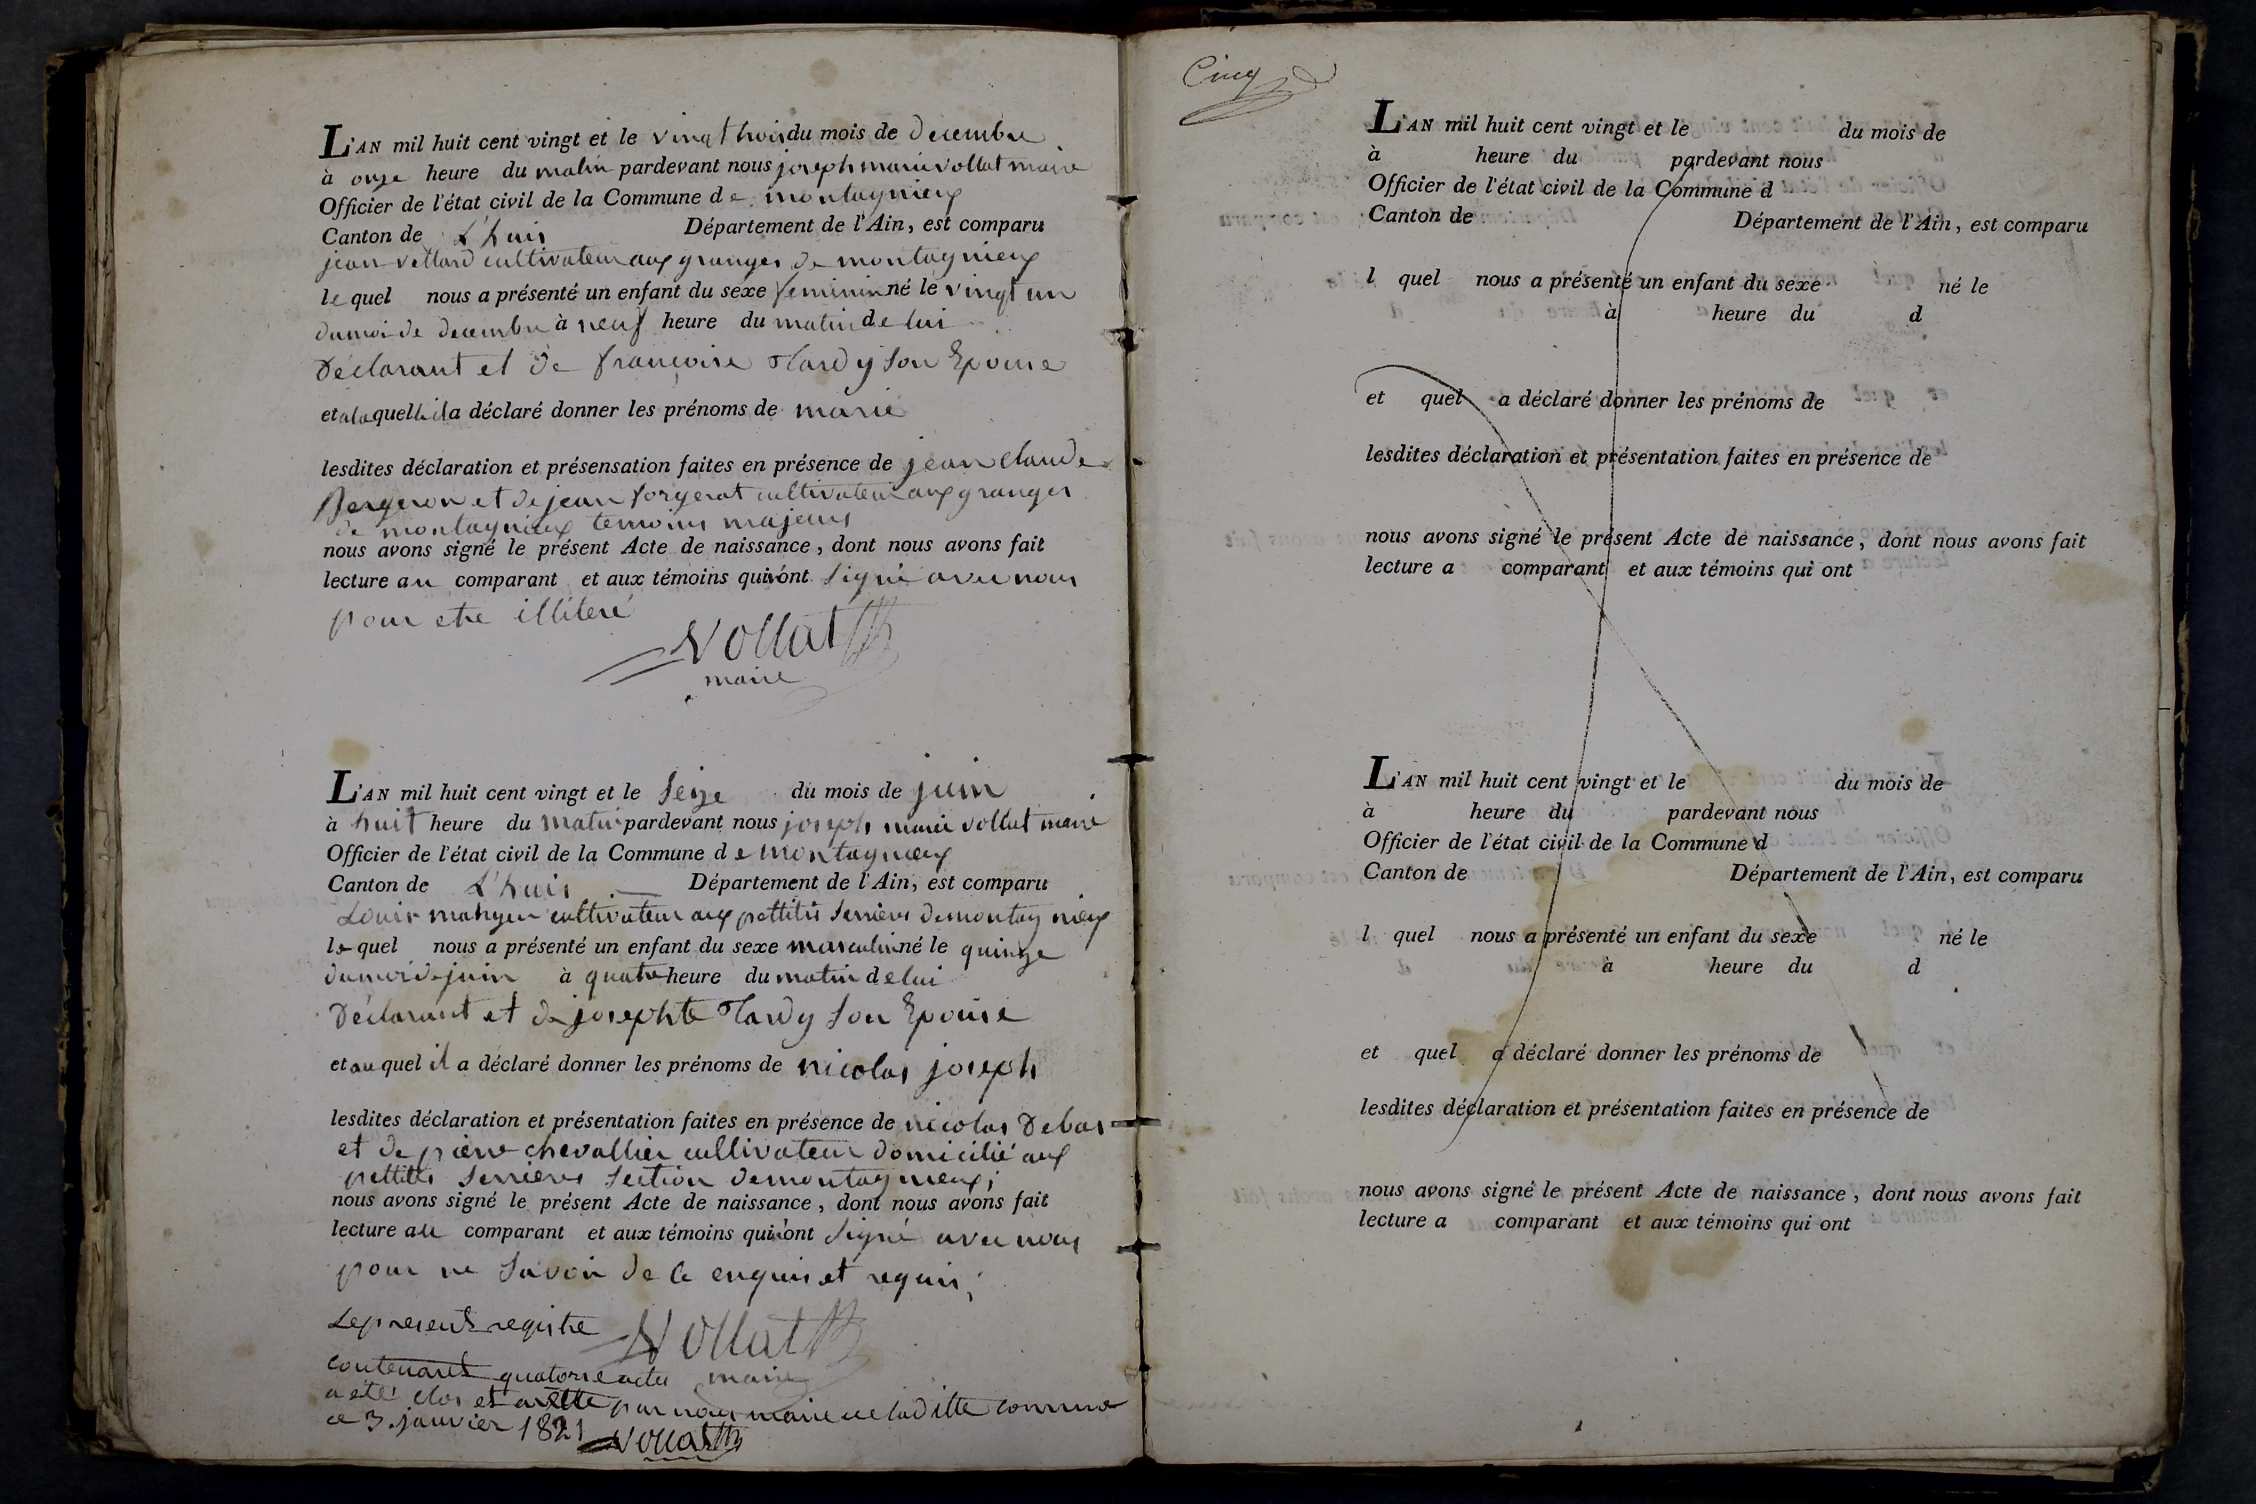 L'AN mil huit cent vingt et le vingt trois du mois de decembre
à onze heure du matin pardevant nous joseph marie vollat maire
Officier de l'état civil de la Commune de montagnieux
Canton de L'huis Département de l'Ain, est comparu
jean vettard cultivateur aux granges de montagnieux
le quel nous a présenté un enfant du sexe feminin né le vingt un
du moi de decembre à neuf heure du matin de lui
Déclarant et de françoise Tardy son Epouse
et a la quelle il a déclaré donner les prénoms de marie
lesdites déclaration et présensation faites en présence de jean claude
Bergeron et de jean forgerat cultivateur aux granges
de montagnieux temoins majeurs
nous avons signé le présent Acte de naissance, dont nous avons fait
lecture au comparant et aux témoins qui n'ont signé avec nous
pour etre illiteré
Vollat
maire
L'AN mil huit cent vingt et le seize du mois de juin
à huit heure du matin pardevant nous joseph marie vollat maire
Officier de l'état civil de la Commune de montagnieux
Canton de L'huis Département de l'Ain, est comparu
Louis cultivateur aux pettitis serrieres de montagnieux
le quel nous a présenté un enfant du sexe masculin né le quinze
du moi de juin à quatre heure du matin de lui
Déclarant et de josephte Tardy son Epouse
et au quel il a déclaré donner les prénoms de nicolas joseph
lesdites déclaration et présentation faites en présence de nicolas Debas
et de pierre chevallier cultivateur domicilié aux
pettites serrieres section de montagnieux;
nous avons signé le présent Acte de naissance, dont nous avons fait
lecture au comparant et aux témoins qui n'ont signé avec nous
pour ne savoir de ce enquis et requis;
Le present registre Vollat
contenant quatorze actes maire
a été clos et aretté par nous maire de laditte commune
ce 3. janvier 1821 Vollat
Cinq
L'AN mil huit cent vingt et le du mois de
à heure du pardevant nous
Officier de l'état civil de la Commune d
Canton de Département de l'Ain, est comparu
l quel nous a présenté un enfant du sexe né le
à heure du d
et quel a déclaré donner les prénoms de
lesdites déclaration et présentation faites en présence de
nous avons signé le présent Acte de naissance, dont nous avons fait
lecture a comparant et aux témoins qui ont
L'AN mil huit cent vingt et le du mois de
à heure du pardevant nous
Officier de l'état civil de la Commune d
Canton de Département de l'Ain, est comparu
l quel nous a présenté un enfant du sexe né le
à heure du d
et quel a déclaré donner les prénoms de
lesdites déclaration et présentation faites en présence de
nous avons signé le présent Acte de naissance, dont nous avons fait
lecture a comparant et aux témoins qui ont